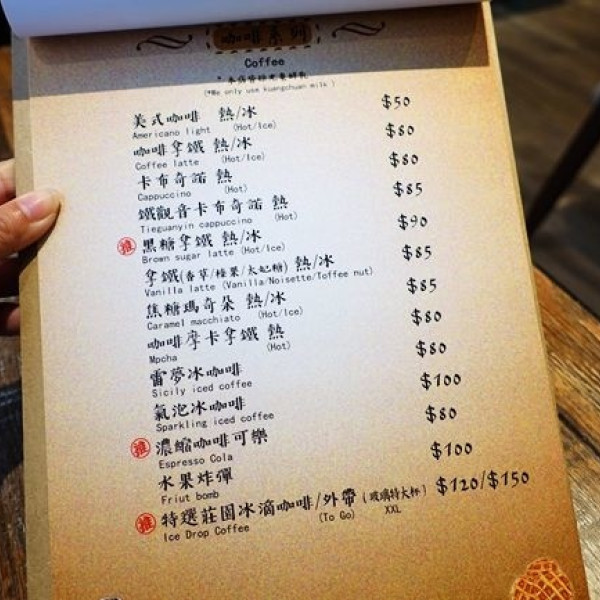 咖啡系列
Coffee
(*We only use kuangchuan milk )
美式咖啡 熱/冰 $50
Americano light (Hot/Ice)
咖啡拿鐵 熱/冰 $80
Coffee latte (Hot/Ice)
卡布奇諾 熱 $80
Cappuccino (Hot)
鐵觀音卡布奇諾 熱 $85
Tieguanyin cappuccino (Hot)
推 黑糖拿鐵 熱/冰 $90
Brown sugar latte (Hot/Ice)
拿鐵(香草/榛果/太妃糖) 熱/冰 $85
Vanilla latte (Vanilla/Noisette/Toffee nut)
焦糖瑪奇朵 熱/冰 $85
Caramel macchiato (Hot/Ice)
咖啡摩卡拿鐵 熱 $80
Mpcha (Hot)
雷夢冰咖啡 $80
Sicily iced coffee
氣泡冰咖啡 $100
Sparkling iced coffee
推 濃縮咖啡可樂 $80
Espresso Cola
水果炸彈 $100
Friut bomb
推 特選莊園冰滴咖啡/外帶(玻璃特大杯) $120/$150
Ice Drop Coffee (To Go) XXL